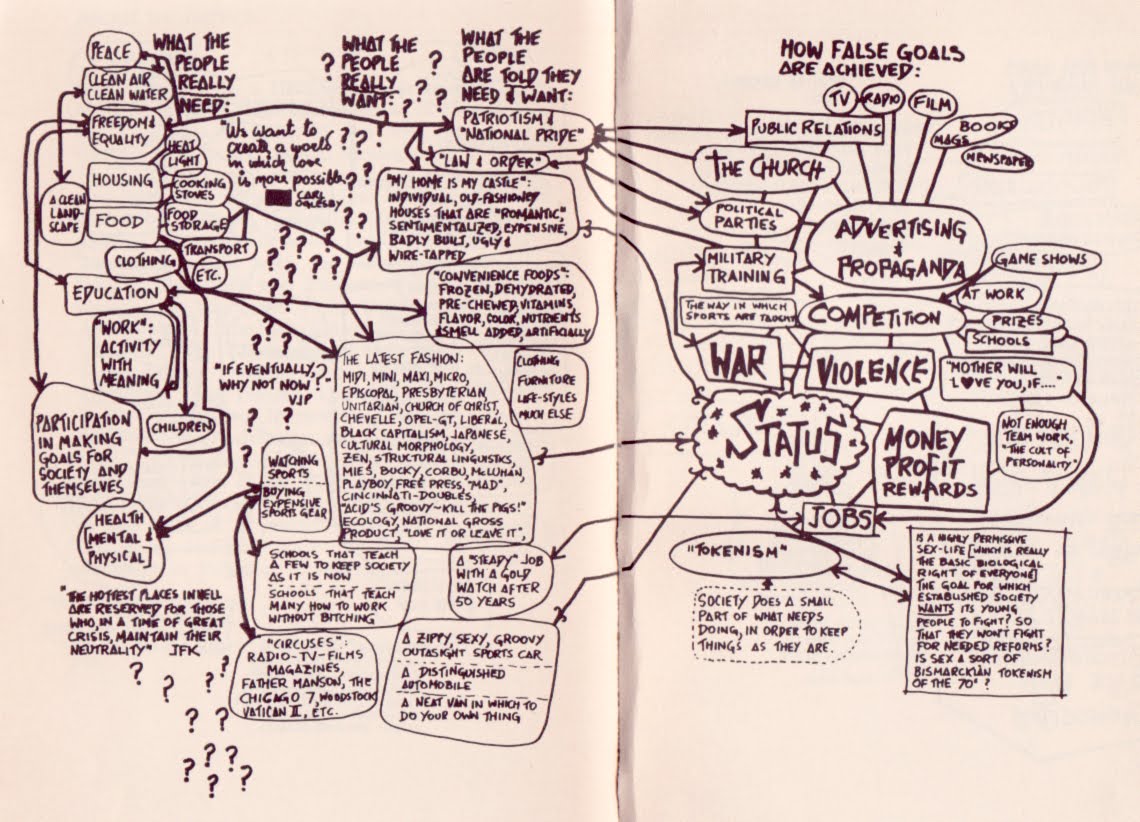 WHAT THE
PEOPLE
REALLY
NEED:
PEACE
CLEAN AIR
CLEAN WATER
FREEDOM &
EQUALITY
HEAT
LIGHT
HOUSING
COOKING
STOVES
A CLEAN
LAND-
SCAPE
FOOD
FOOD
STORAGE
TRANSPORT
CLOTHING
ETC.
EDUCATION
"WORK":
ACTIVITY
WITH
MEANING
PARTICIPATION
IN MAKING
GOALS FOR
SOCIETY AND
THEMSELVES
CHILDREN
HEALTH
[MENTAL &
PHYSICAL]
"THE HOTTEST PLACES IN HELL
ARE RESERVED FOR THOSE
WHO, IN A TIME OF GREAT
CRISIS, MAINTAIN THEIR
NEUTRALITY" JFK
WHAT THE
PEOPLE
REALLY
WANT:
"We want to
create a world
in which love
is more possible"
CARL
OGLESBY
"IF EVENTUALLY,
WHY NOT NOW?"
VJP
WHAT THE
PEOPLE
ARE TOLD THEY
NEED & WANT:
PATRIOTISM &
"NATIONAL PRIDE"
"LAW & ORDER"
"MY HOME IS MY CASTLE":
INDIVIDUAL, OLD-FASHIONEY
HOUSES THAT ARE "ROMANTIC",
SENTIMENTALIZED, EXPENSIVE,
BADLY BUILT, UGLY &
WIRE-TAPPED
"CONVENIENCE FOODS":
FROZEN, DEHYDRATED,
PRE-CHEWED, VITAMINS,
FLAVOR, COLOR, NUTRIENTS
& SMELL ADDED, ARTIFICIALLY
THE LATEST FASHION:
MIDI, MINI, MAXI, MICRO,
EPISCOPAL, PRESBYTERIAN,
UNITARIAN, CHURCH OF CHRIST,
CHEVELLE, OPEL-GT, LIBERAL,
BLACK CAPITALISM, JAPANESE,
CULTURAL MORPHOLOGY,
ZEN, STRUCTURAL LINGUISTICS,
MIES, BUCKY, CORBU, McLUHAN,
PLAYBOY, FREE PRESS, "MAD",
CINCINNATI-DOUBLES,
"ACID'S GROOVY~KILL THE PIGS!"
ECOLOGY, NATIONAL GROSS
PRODUCT, "LOVE IT OR LEAVE IT",
CLOTHING
FURNITURE
LIFE-STYLES
MUCH ELSE
WATCHING
SPORTS
BUYING
EXPENSIVE
SPORTS GEAR
SCHOOLS THAT TEACH
A FEW TO KEEP SOCIETY
AS IT IS NOW
SCHOOLS THAT TEACH
MANY HOW TO WORK
WITHOUT BITCHING
A "STEADY" JOB
WITH A GOLD
WATCH AFTER
50 YEARS
"CIRCUSES":
RADIO-TV-FILMS
MAGAZINES,
FATHER MANSON, THE
CHICAGO 7, WOODSTOCK
VATICAN II, ETC.
A ZIPPY, SEXY, GROOVY
OUTASIGHT SPORTS CAR
A DISTINGUISHED
AUTOMOBILE
A NEAT VAN IN WHICH TO
DO YOUR OWN THING
HOW FALSE GOALS
ARE ACHIEVED:
TV
RADIO
FILM
BOOKS
MAGS
NEWSPAPER
PUBLIC RELATIONS
THE CHURCH
POLITICAL
PARTIES
ADVERTISING
&
PROPAGANDA
MILITARY
TRAINING
GAME SHOWS
THE WAY IN WHICH
SPORTS ARE TAUGHT
COMPETITION
AT WORK
PRIZES
SCHOOLS
WAR
VIOLENCE
"MOTHER WILL
L♥VE YOU, IF...."
STATUS
MONEY
PROFIT
REWARDS
NOT ENOUGH
TEAM WORK,
"THE CULT OF
PERSONALITY"
JOBS
"TOKENISM"
SOCIETY DOES A SMALL
PART OF WHAT NEEDS
DOING, IN ORDER TO KEEP
THINGS AS THEY ARE.
IS A HIGHLY PERMISSIVE
SEX-LIFE [WHICH IS REALLY
THE BASIC BIOLOGICAL
RIGHT OF EVERYONE]
THE GOAL FOR WHICH
ESTABLISHED SOCIETY
WANTS ITS YOUNG
PEOPLE TO FIGHT? SO
THAT THEY WON'T FIGHT
FOR NEEDED REFORMS?
IS SEX A SORT OF
BISMARCKIAN TOKENISM
OF THE 70s?